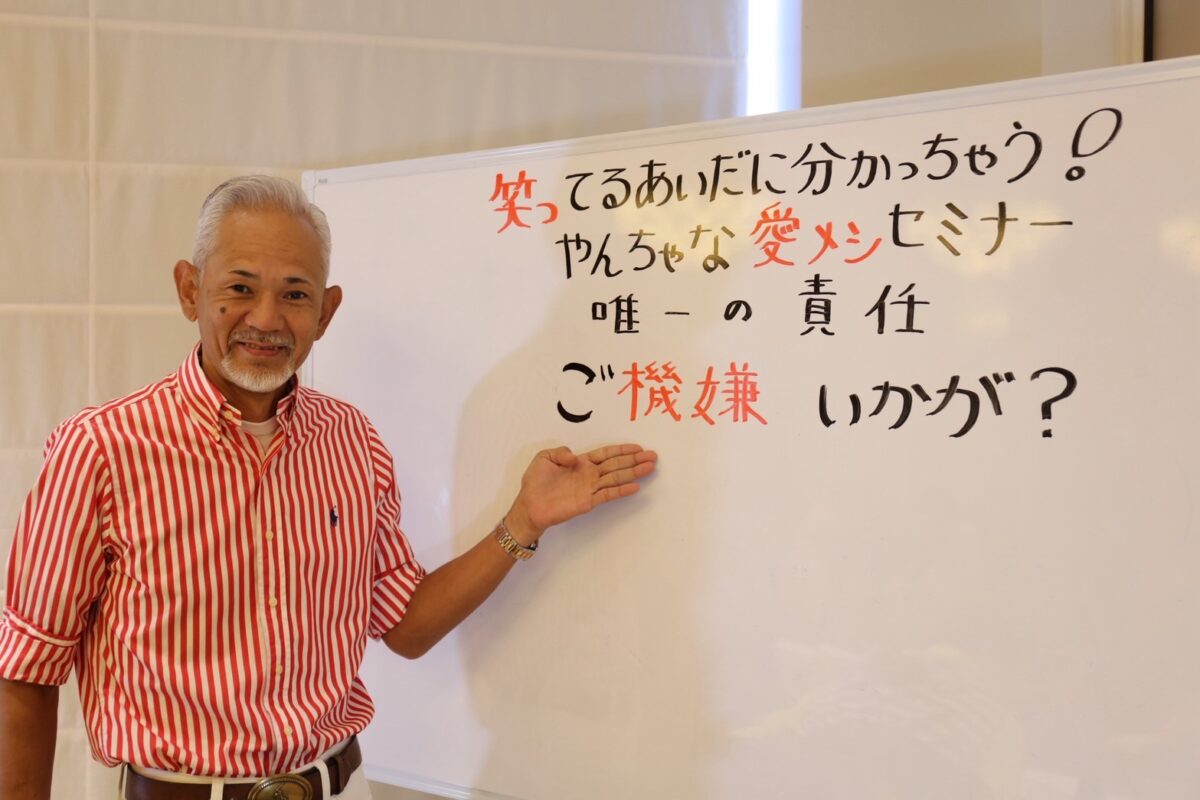 笑ってるあいだに分かっちゃう!
やんちゃな愛メシセミナー
唯一の責任
ご機嫌いかが?